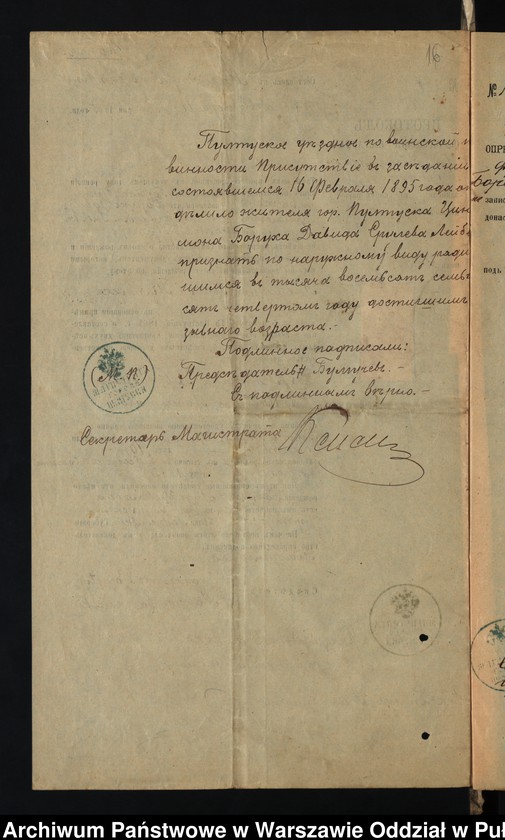 16
Пултуское уѣздное по воинской
винности Присутствіе въ засѣданіи
состоявшемся 16 Февраля 1895 года
дѣлило жителя гор. Пултуска
мона Боруха Давида Срулева
признать по наружному виду роди
шимся въ тысяча восемьсотъ семьде
сятъ четвертомъ году достигшимъ
зывнаго возраста.-
Подлинное подписали:
Предсѣдатель -
Съ подлиннымъ вѣрно.-
(М. П.)
Секретарь Магистрата
№
ОПРЕ
запис
донас
подъ
Archiwum Państwowe w Warszawie Oddział w Puł